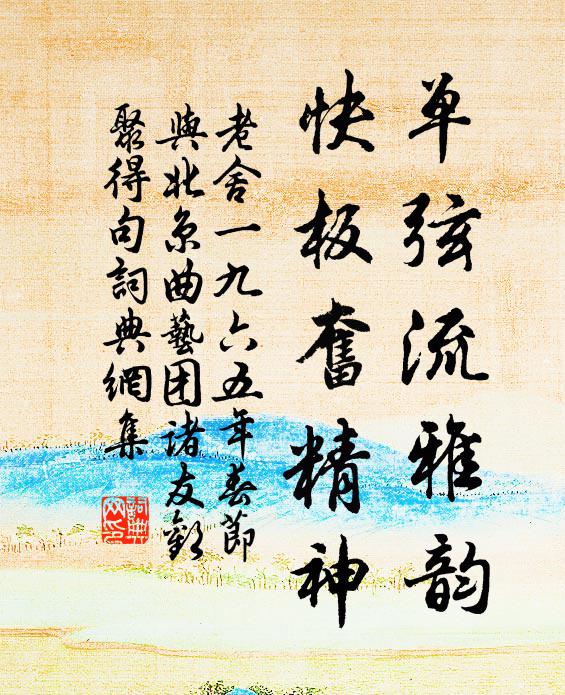 单弦流雅韵
快板奮精神
老舍一九六五年春節
與北京曲藝团諸友歡
聚得句詞典網集